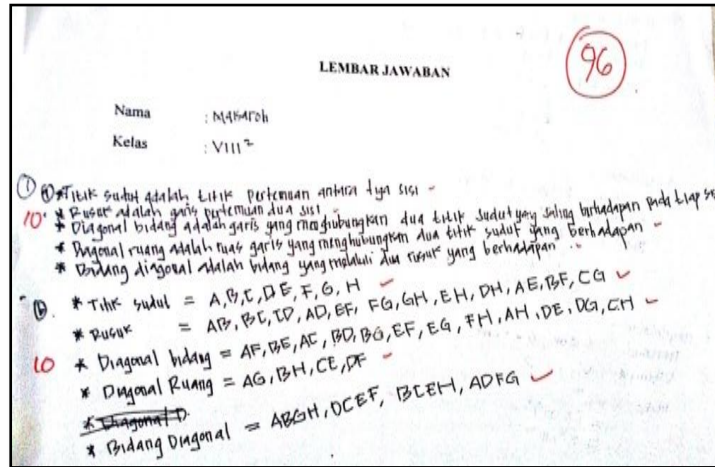 96
LEMBAR JAWABAN
Nama : Makaroh
Kelas : VIII 2
① ⓐ * Titik sudut adalah titik pertemuan antara tiga sisi
10 * Rusuk adalah garis pertemuan dua sisi
* Diagonal bidang adalah garis yang menghubungkan dua titik sudut yang saling berhadapan pada tiap
* Diagonal ruang adalah ruas garis yang menghubungkan dua titik sudut yang berhadapan
* Bidang diagonal adalah bidang yang melalui dua rusuk yang berhadapan
ⓑ. * Titik sudut = A, B, C, D, E, F, G, H
* Rusuk = AB, BC, CD, AD, EF, FG, GH, EH, DH, AE, BF, CG
10 * Diagonal bidang = AF, BE, AC, BD, BG, EF, EG, FH, AH, DE, DG, CH
* Diagonal Ruang = AG, BH, CE, DF
* Diagonal D
* Bidang Diagonal = ABGH, DCEF, BCEH, ADFG